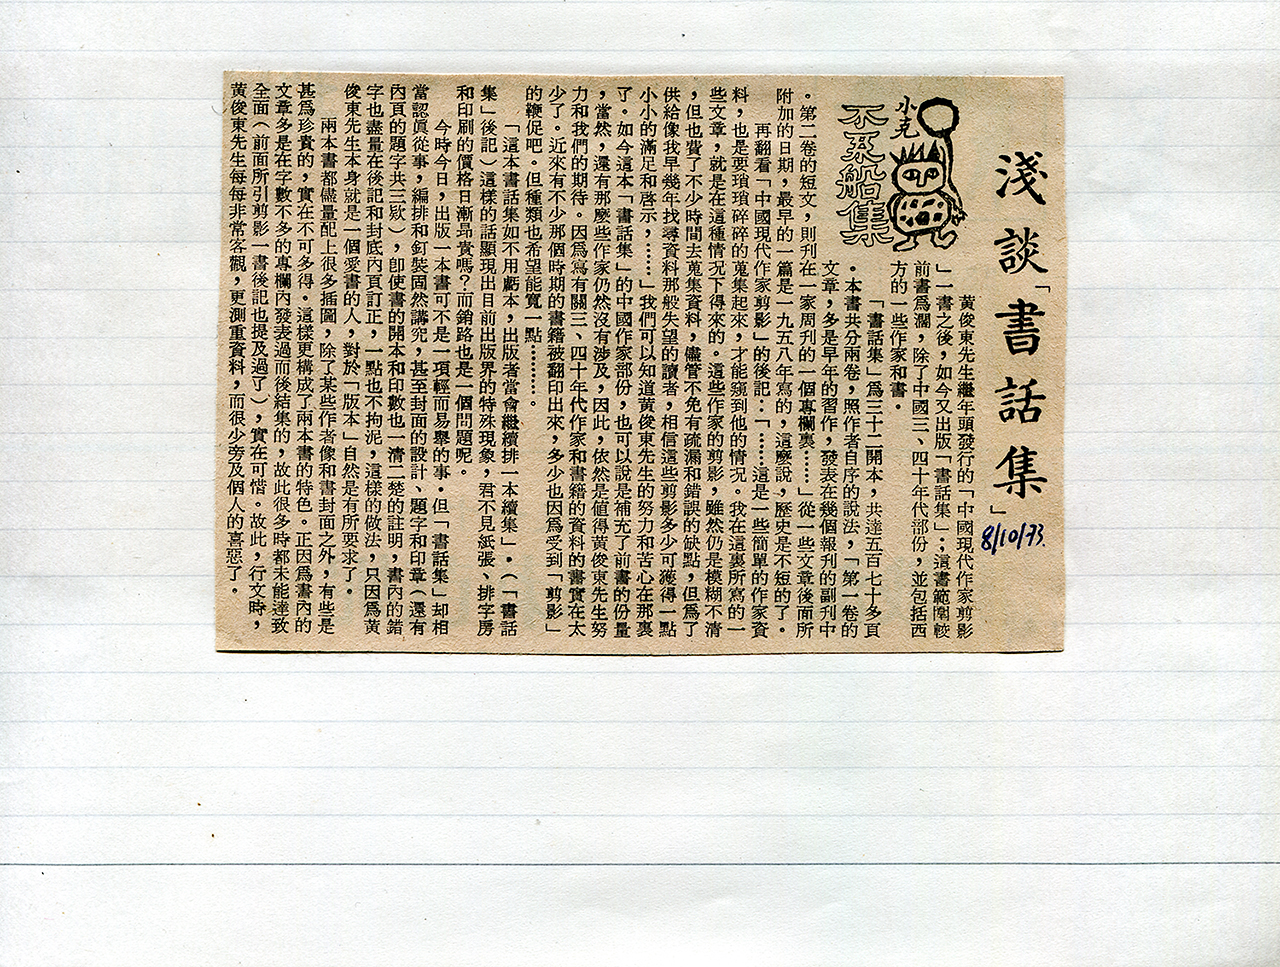 淺談「書話集」
8/10/73.
小克
不系船集
黃俊東先生繼年頭發行的「中國現代作家剪影
」一書之後，如今又出版「書話集」；這書範圍較
前書為濶，除了中國三、四十年代部份，並包括西
方的一些作家和書。
「書話集」為三十二開本，共達五百七十多頁
。本書共分兩卷，照作者自序的說法，「第一卷的
文章，多是早年的習作，發表在幾個報刊的副刊中
。第二卷的短文，則刊在一家周刊的一個專欄裏……」從一些文章後面所
附加的日期，最早的一篇是一九五八年寫的，這麽說，歷史是不短的了。
再翻看「中國現代作家剪影」的後記：「……這是一些簡單的作家資
料，也是要瑣瑣碎碎的蒐集起來，才能窺到他的情況。我在這裏所寫的一
些文章，就是在這種情況下得來的。這些作家的剪影，雖然仍是模糊不清
，但也費了不少時間去蒐集資料，儘管不免有疏漏和錯誤的缺點，但為了
供給像我早幾年找尋資料那般失望的讀者，相信這些剪影多少可獲得一點
小小的滿足和啓示，……」我們可以知道黃俊東先生的努力和苦心在那裏
了。如今這本「書話集」的中國作家部份，也可以說是補充了前書的份量
，當然，還有那麽些作家仍然沒有涉及，因此，依然是值得黃俊東先生努
力和我們的期待。因為寫有關三、四十年代作家和書籍的資料的書實在太
少了。近來有不少那個時期的書籍被翻印出來，多少也因為受到「剪影」
的鞭促吧。但種類也希望能寬一點…………。
「這本書話集如不用虧本，出版者當會繼續排一本續集」。（「書話
集」後記）這樣的話顯現出目前出版界的特殊現象，君不見紙張、排字房
和印刷的價格日漸昂貴嗎？而銷路也是一個問題呢。
今時今日，出版一本書可不是一項輕而易舉的事。但「書話集」却相
當認眞從事，編排和釘裝固然講究，甚至封面的設計、題字和印章（還有
內頁的題字共三欵），卽使書的開本和印數也一清二楚的註明，書內的錯
字也盡量在後記和封底內頁訂正，一點也不拘泥，這樣的做法，只因為黃
俊東先生本身就是一個愛書的人，對於「版本」自然是有所要求了。
兩本書都儘量配上很多插圖，除了某些作者像和書封面之外，有些是
甚為珍貴的，實在不可多得。這樣更構成了兩本書的特色。正因為書內的
文章多是在字數不多的專欄內發表過而後結集的，故此很多時都未能達致
全面（前面所引剪影一書後記也提及過了），實在可惜。故此，行文時，
黃俊東先生每每非常客觀，更測重資料，而很少旁及個人的喜惡了。